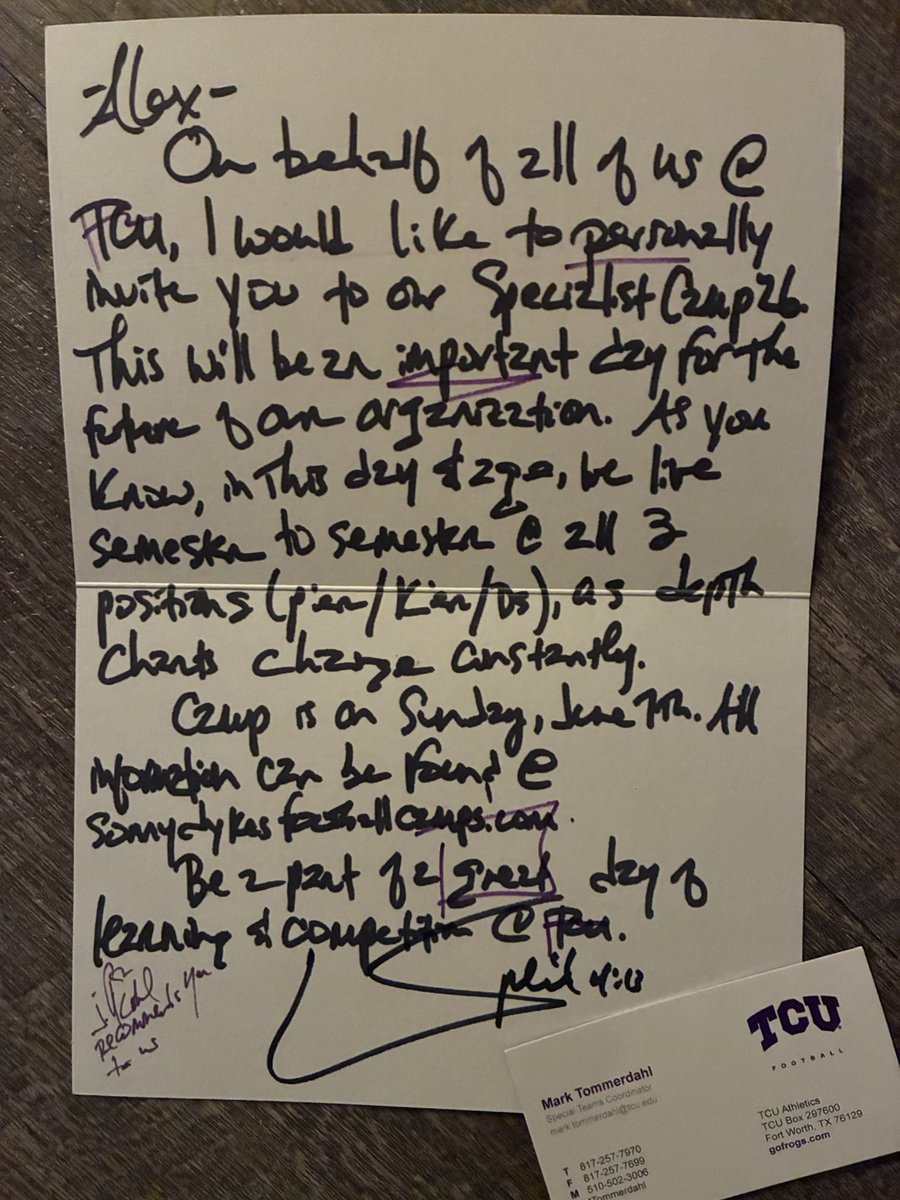 -Alex-
On behalf of all of us @
TCU, I would like to personally
invite you to our Specialist Camp 26.
This will be an important day for the
future of our organization. As you
know, in this day & age, we live
semester to semester @ all 3
positions (p'er/K'er/DS), as depth
charts change constantly.
Camp is on Sunday, June 7th. All
information can be found @
sonnydykesfootballcamps.com.
Be a part of a great day of
learning & competition @ TCU.
phil 4:13
recommends you
to us
TCU
FOOTBALL
Mark Tommerdahl
Special Teams Coordinator
mark.tommerdahl@tcu.edu
T 817-257-7970
F 817-257-7699
M 510-502-3006
TCU Athletics
TCU Box 297600
Fort Worth, TX 76129
gofrogs.com